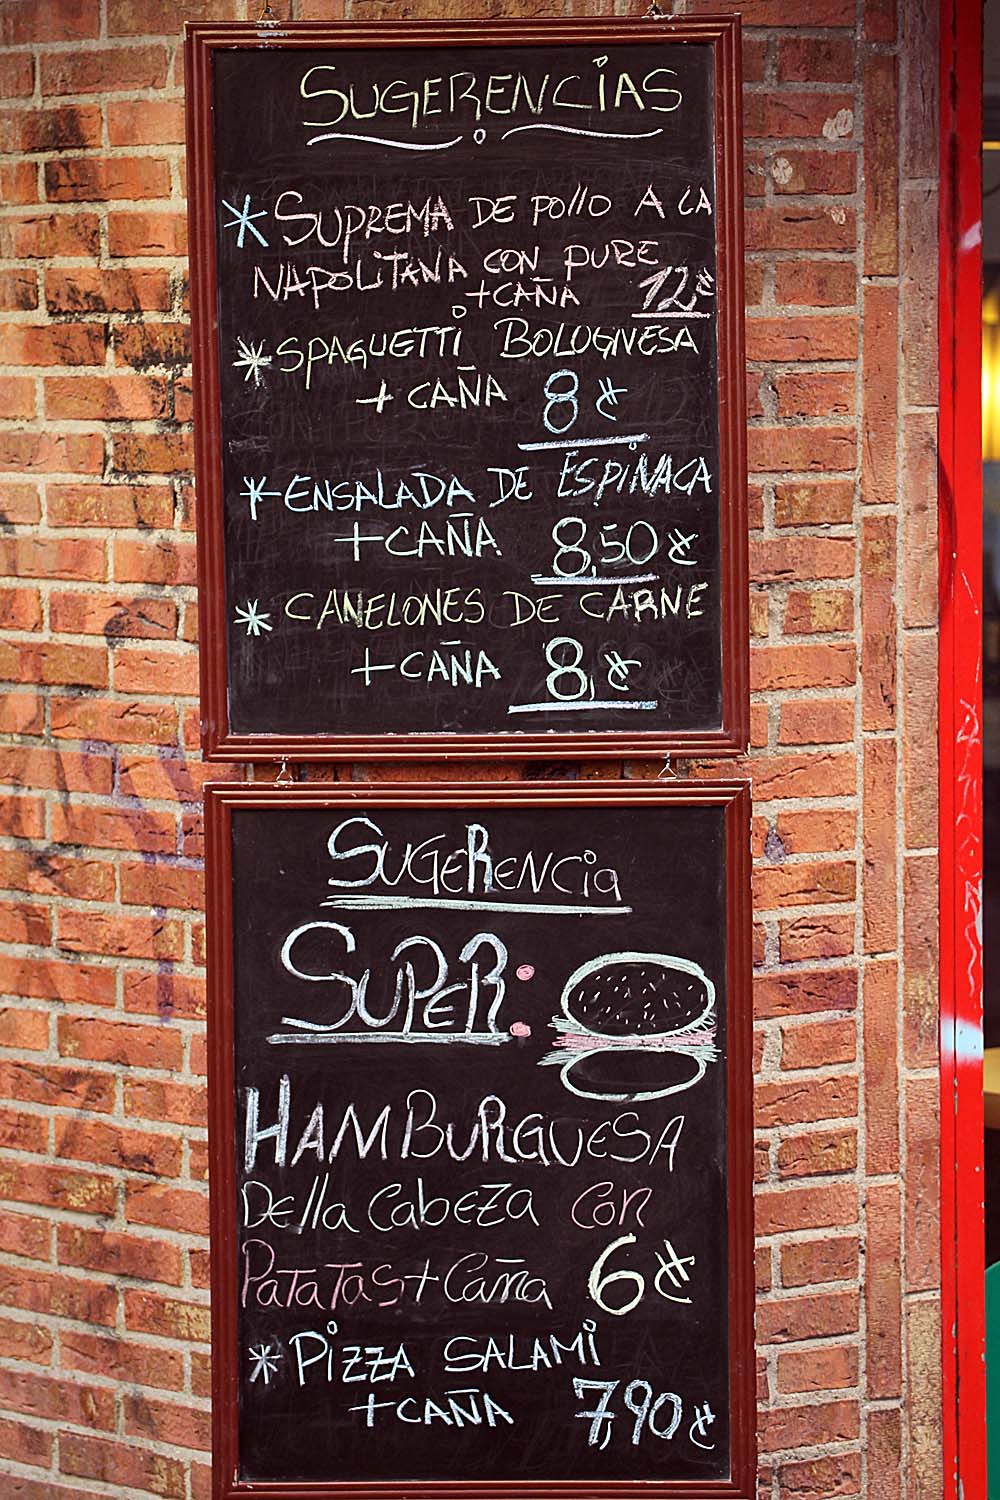 SUGERENCIAS
* SUPREMA DE POllO A LA
NAPOLITANA CON PURE
+CAÑA 12€
* SPAGUETTI BOLOGNESA
+ CAÑA 8 €
* ENSALADA DE ESPINACA
+CAÑA 8,50 €
* CANELONES DE CARNE
+CAÑA 8, €
SUGERENCia
SUPER:
HAMBURGUESA
Della Cabeza con
PATATAS + Caña 6 €
* PIZZA SALAMI
+CAÑA 7,90 €